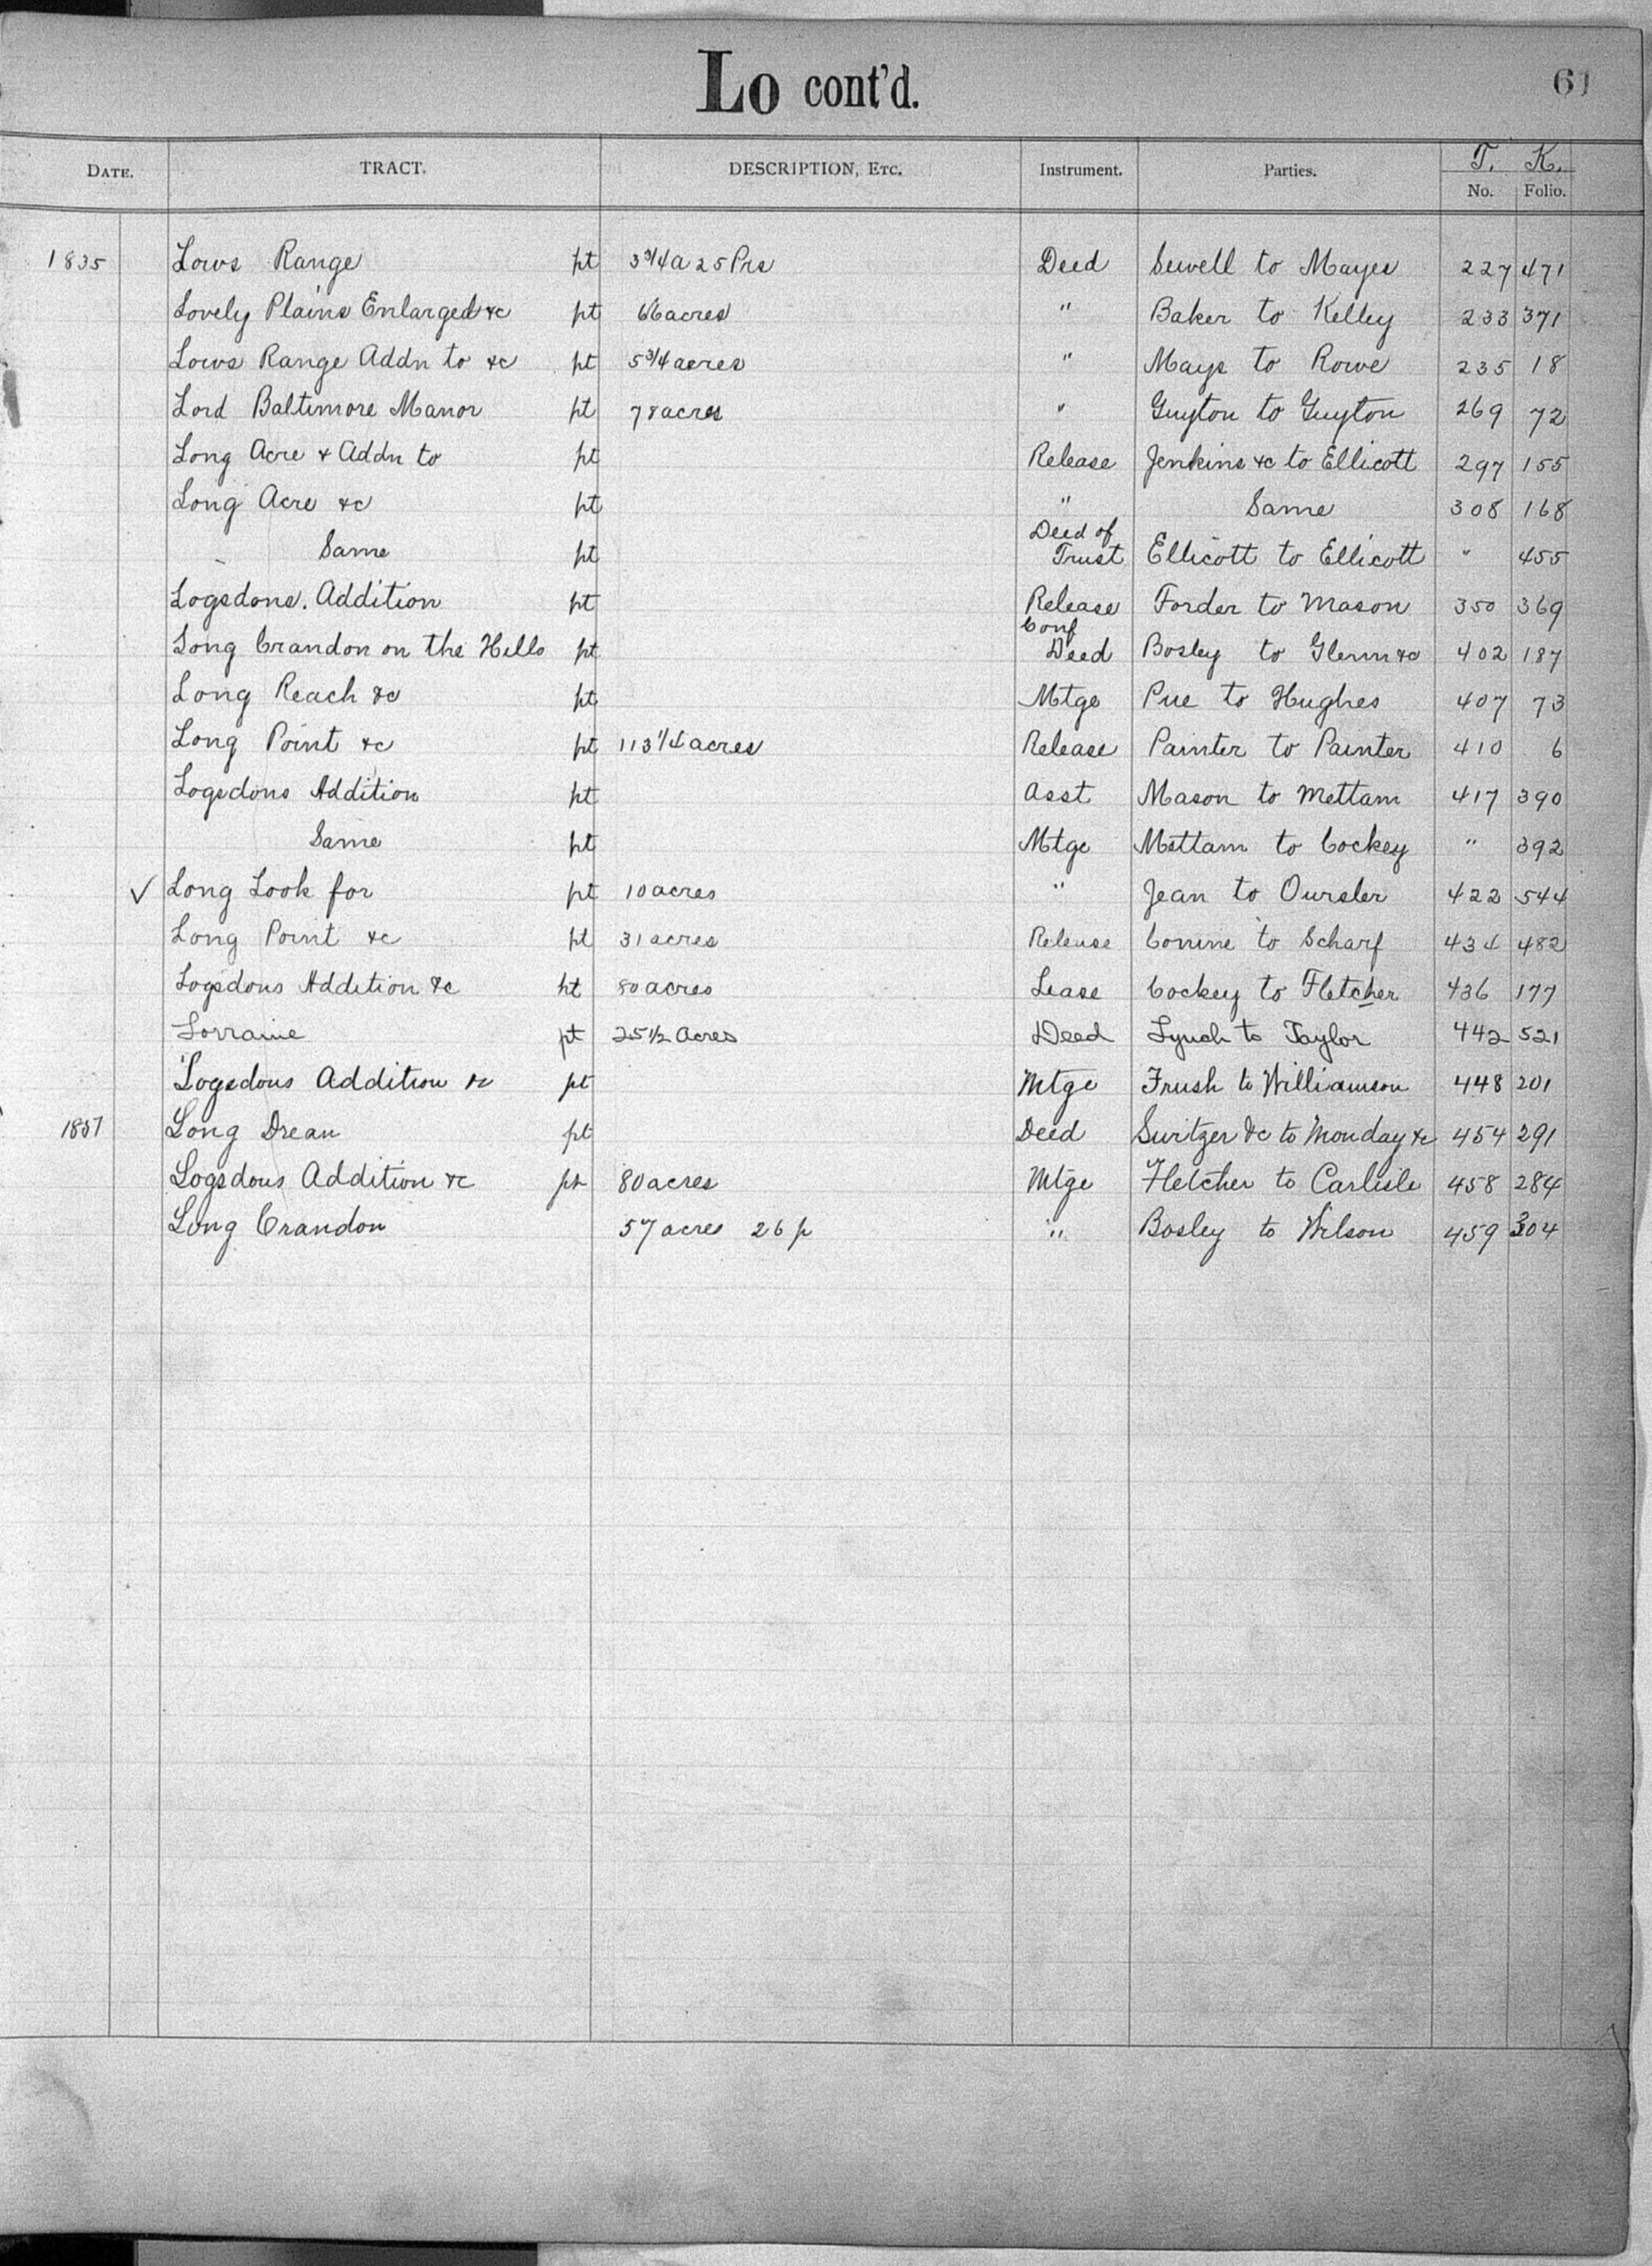 Lo cont'd.
61
DATE. TRACT. DESCRIPTION, ETC. Instrument. Parties. T. K.
No. Folio.
1835 Lows Range pt 3 3/4 a 25 Prs Deed Sewell to Mayes 227 471
Lovely Plains Enlarged &c pt 66 acres " Baker to Kelley 233 371
Lows Range Addn to &c pt 5 3/4 acres " Mays to Rowe 235 18
Lord Baltimore Manor pt 78 acres " Guyton to Guyton 269 72
Long Acre & Addn to pt Release Jenkins &c to Ellicott 297 155
Long Acre &c pt " Same 308 168
Same pt Deed of Trust Ellicott to Ellicott " 455
Logsdons. Addition pt Release Forder to Mason 350 369
Long Crandon on the Hills pt Conf Deed Bosley to Glenn &c 402 187
Long Reach &c pt Mtge Pue to Hughes 407 73
Long Point &c pt 113 1/4 acres Release Painter to Painter 410 6
Logsdons Addition pt Asst Mason to Mettam 417 390
Same pt Mtge Mettam to Cockey " 392
✓ Long Look for pt 10 acres " Jean to Oursler 422 544
Long Point &c pt 31 acres Release Conine to Scharf 434 482
Logsdons Addition &c pt 80 acres Lease Cockey to Fletcher 436 177
Lorraine pt 25 1/2 Acres Deed Lynch to Taylor 442 521
Logsdons Addition &c pt Mtge Frush to Williamson 448 201
1837 Long Drean pt Deed Switzer &c to Monday &c 454 291
Logsdons Addition &c pt 80 acres Mtge Fletcher to Carlisle 458 284
Long Crandon 57 acres 26 p " Bosley to Wilson 459 304